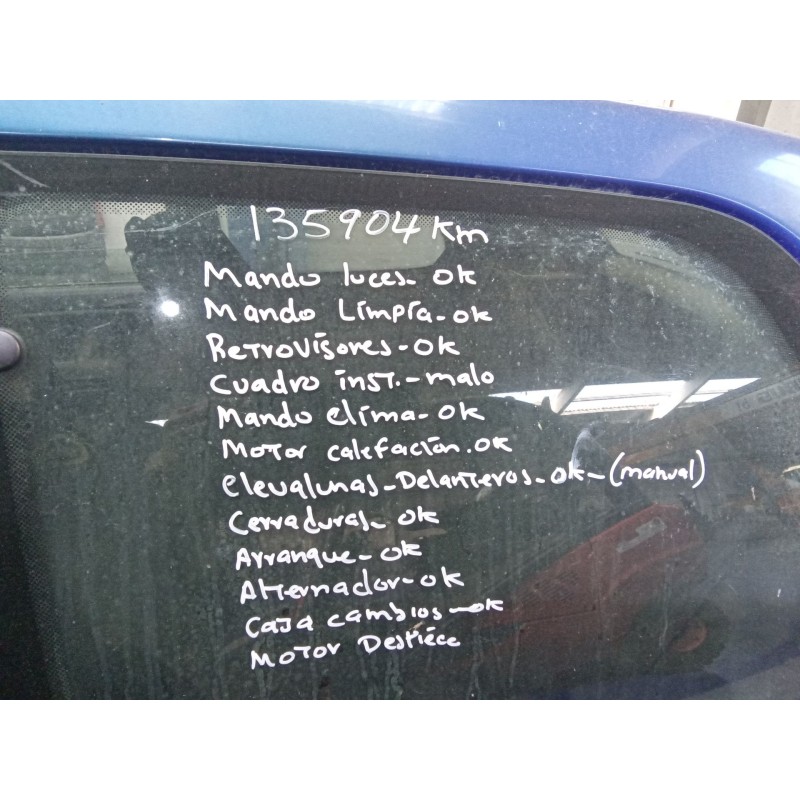 135904 Km
Mando luces - ok
Mando Limpia - ok
Retrovisores - ok
Cuadro inst. - malo
Mando clima - ok
Motor calefación. ok
elevalunas - Delanteros - ok - (manual)
Cerraduras - ok
Arranque - ok
Alternador - ok
Caja cambios - ok
Motor Despiece